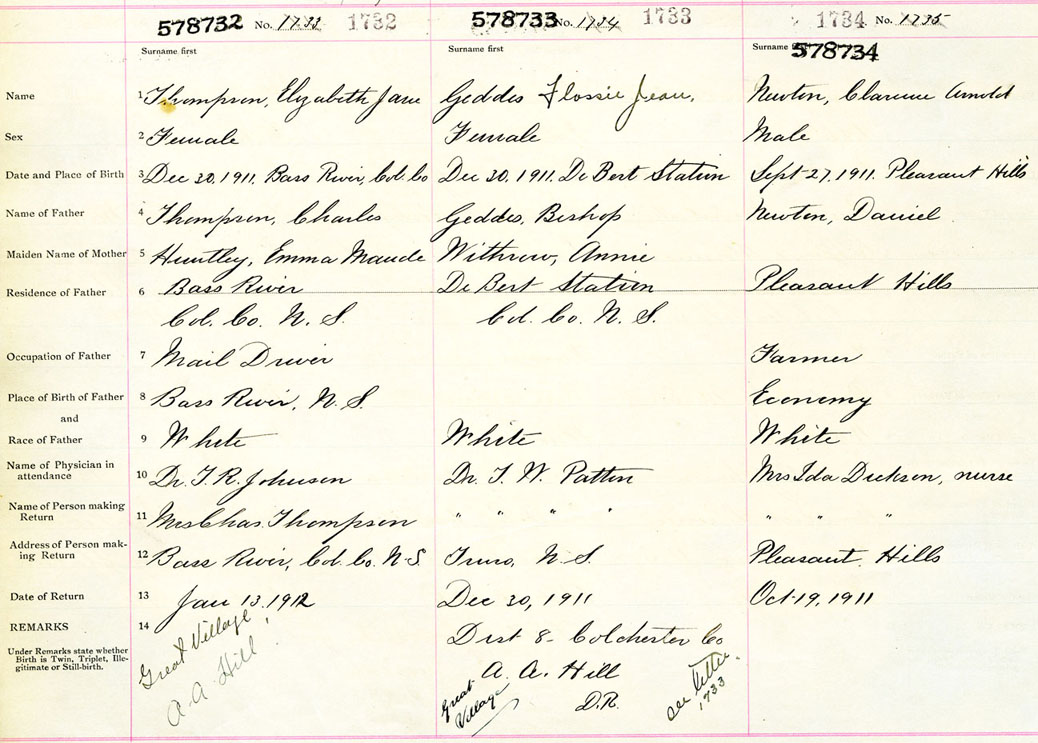 578732 No. 1733 1732 578733 No. 1734 1733 1734 No. 1735
Surname first Surname first Surname 578734
Name 1 Thompson, Elizabeth Jane Geddes Flossie Jean, Newton, Clarence Arnold
Sex 2 Female Female Male
Date and Place of Birth 3 Dec 30, 1911, Bass River, Col. Co Dec 30, 1911. De Bert Station Sept 27, 1911. Pleasant Hills
Name of Father 4 Thompson, Charles Geddes, Bishop Newton, Daniel
Maiden Name of Mother 5 Huntley, Emma Maude Withrow, Annie
Residence of Father 6 Bass River De Bert Station Pleasant Hills
Col. Co. N. S. Col. Co. N. S.
Occupation of Father 7 Mail Driver Farmer
Place of Birth of Father 8 Bass River, N. S. Economy
and
Race of Father 9 White White White
Name of Physician in
attendance 10 Dr. T. R. Johnson Dr. T. W. Patton Mrs Ida Dickson, nurse
Name of Person making
Return 11 Mrs Chas. Thompson " " " " " " "
Address of Person mak-
ing Return 12 Bass River, Col. Co. N-S Truro, N. S. Pleasant Hills
Date of Return 13 Jan 13, 1912 Dec 30, 1911 Oct-19, 1911
REMARKS 14
Under Remarks state whether
Birth is Twin, Triplet, Ille-
gitimate or Still-birth.
Great Village
A. A. Hill
Dist 8- Colchester Co
A. A. Hill
D.R.
Great
Village
see letter
1733